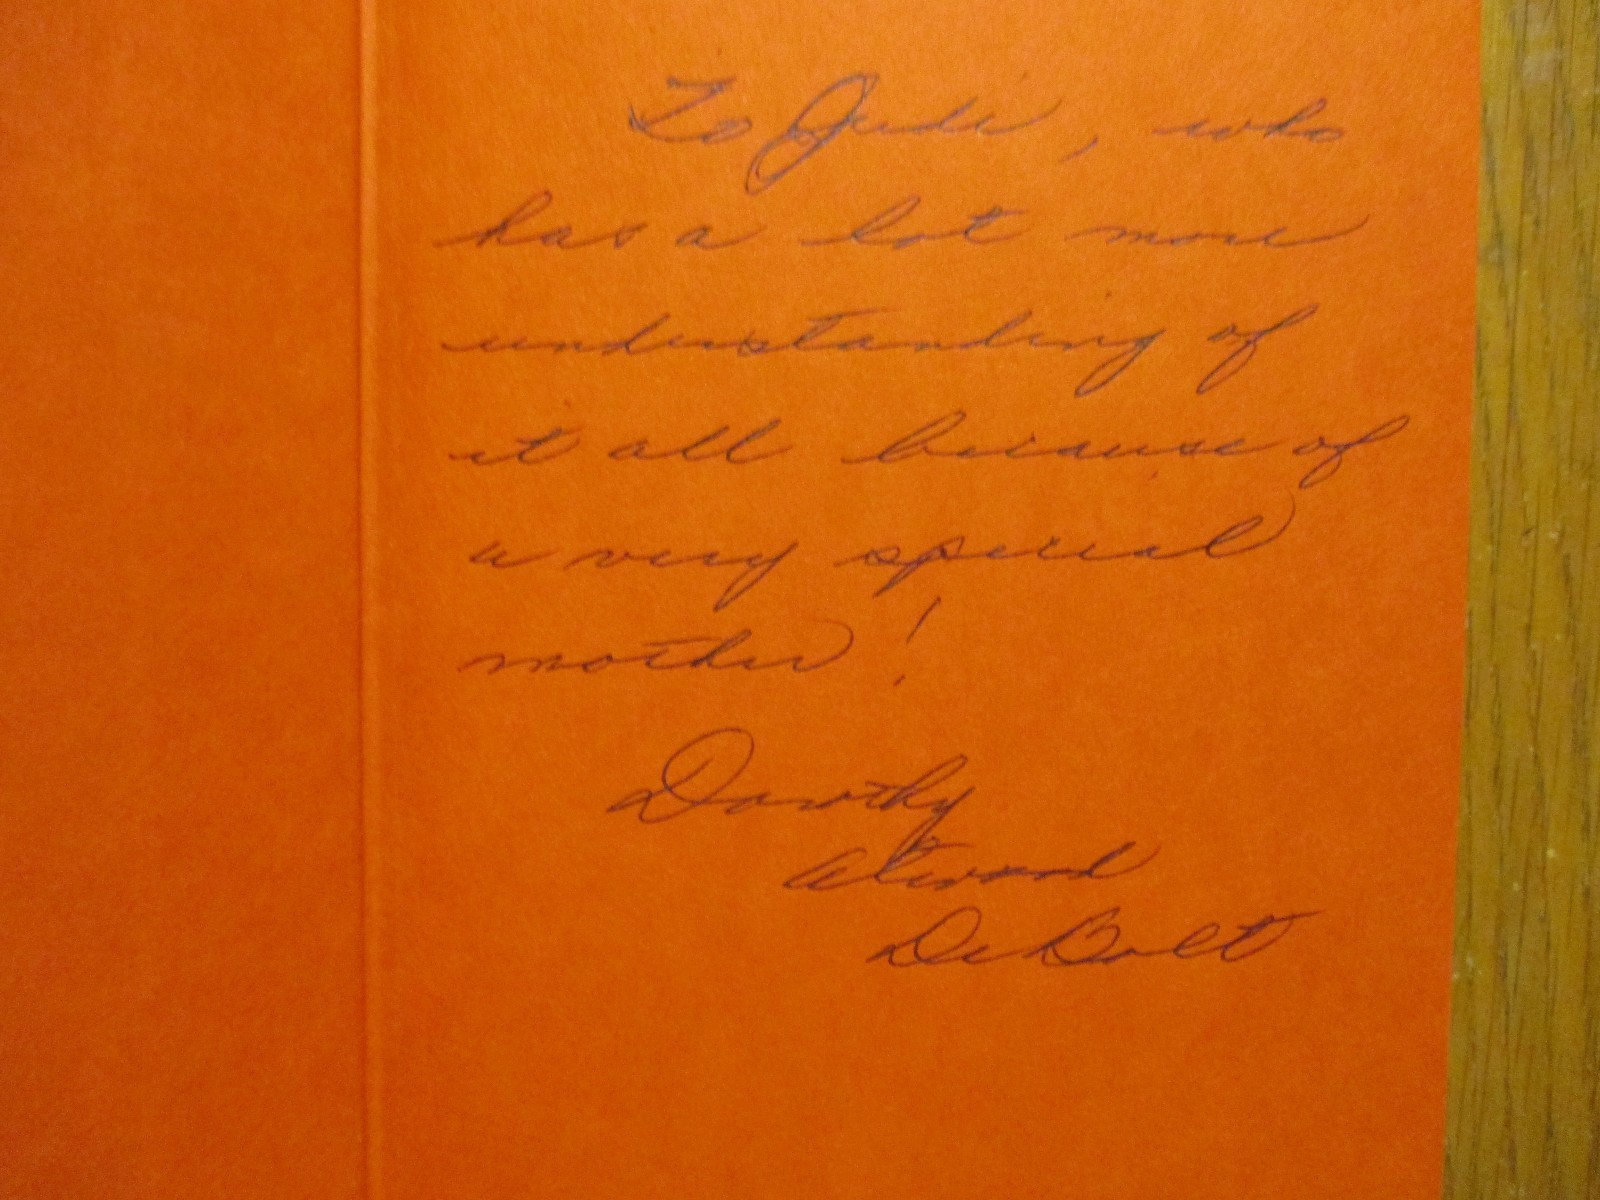 To Judi, who
has a lot more
understanding of
it all because of
a very special
mother!
Dorothy
Atwood
DeBolt